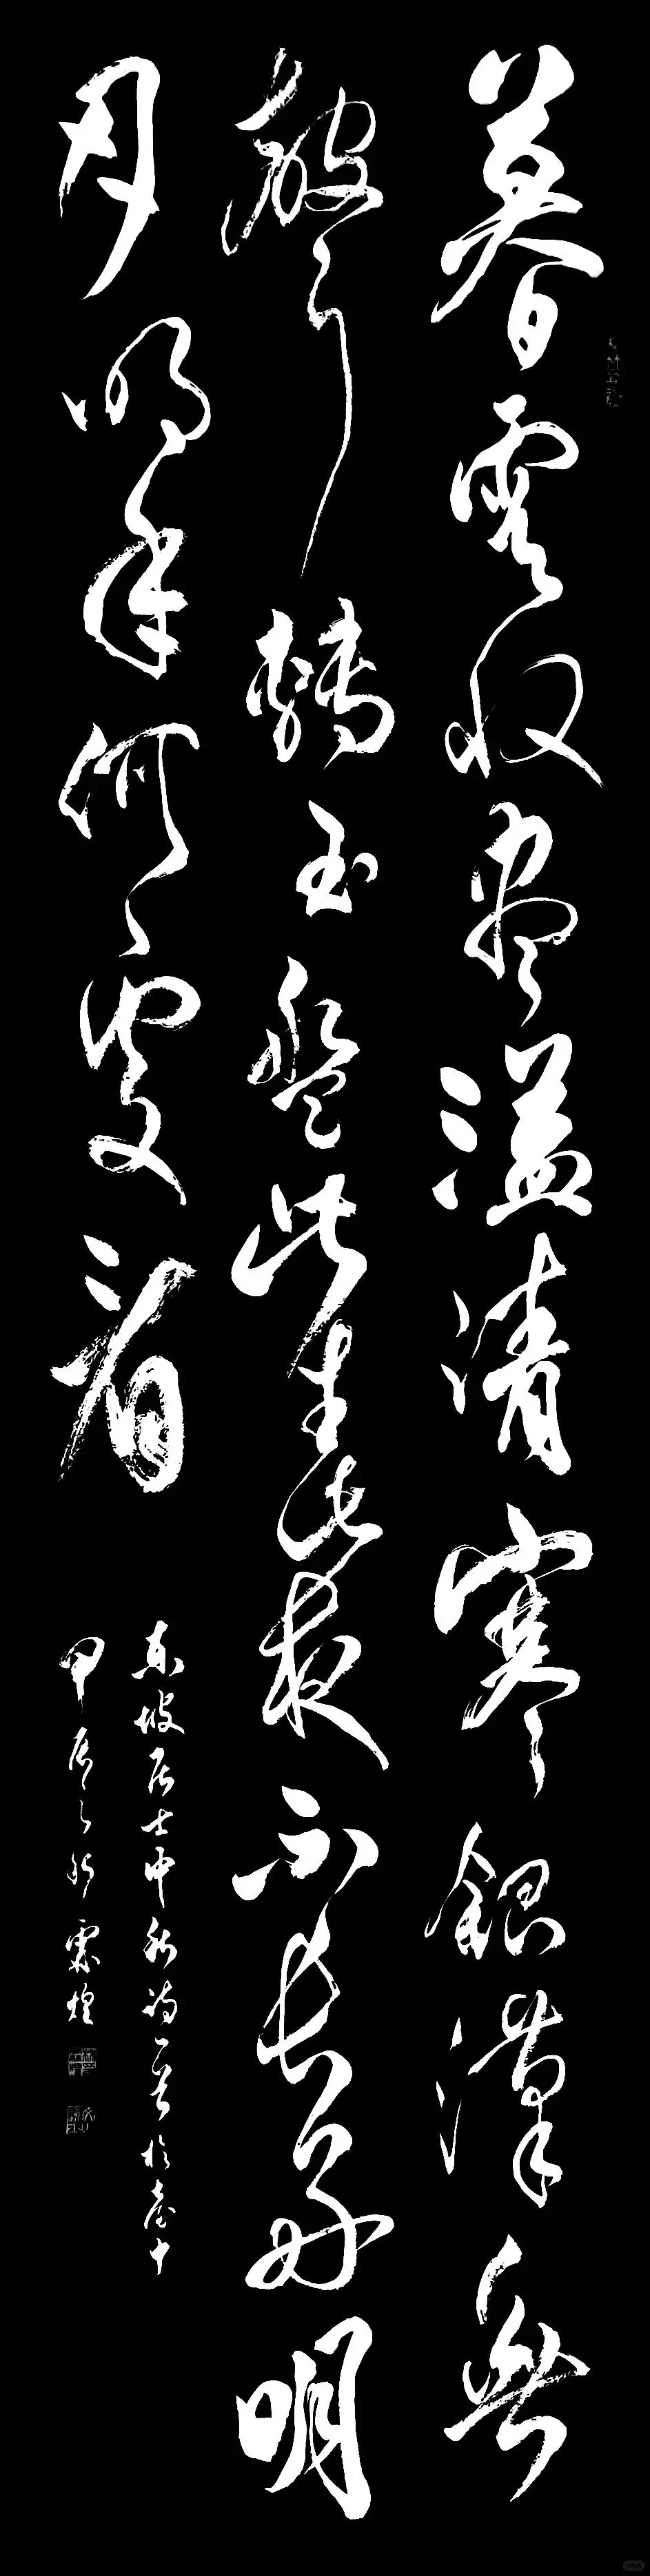 暮雲收盡溢清寒銀漢無
聲轉玉盤此生此夜不長好明
月明年何處看
東坡居士中秋詩一首於臺中
甲辰之秋 煌